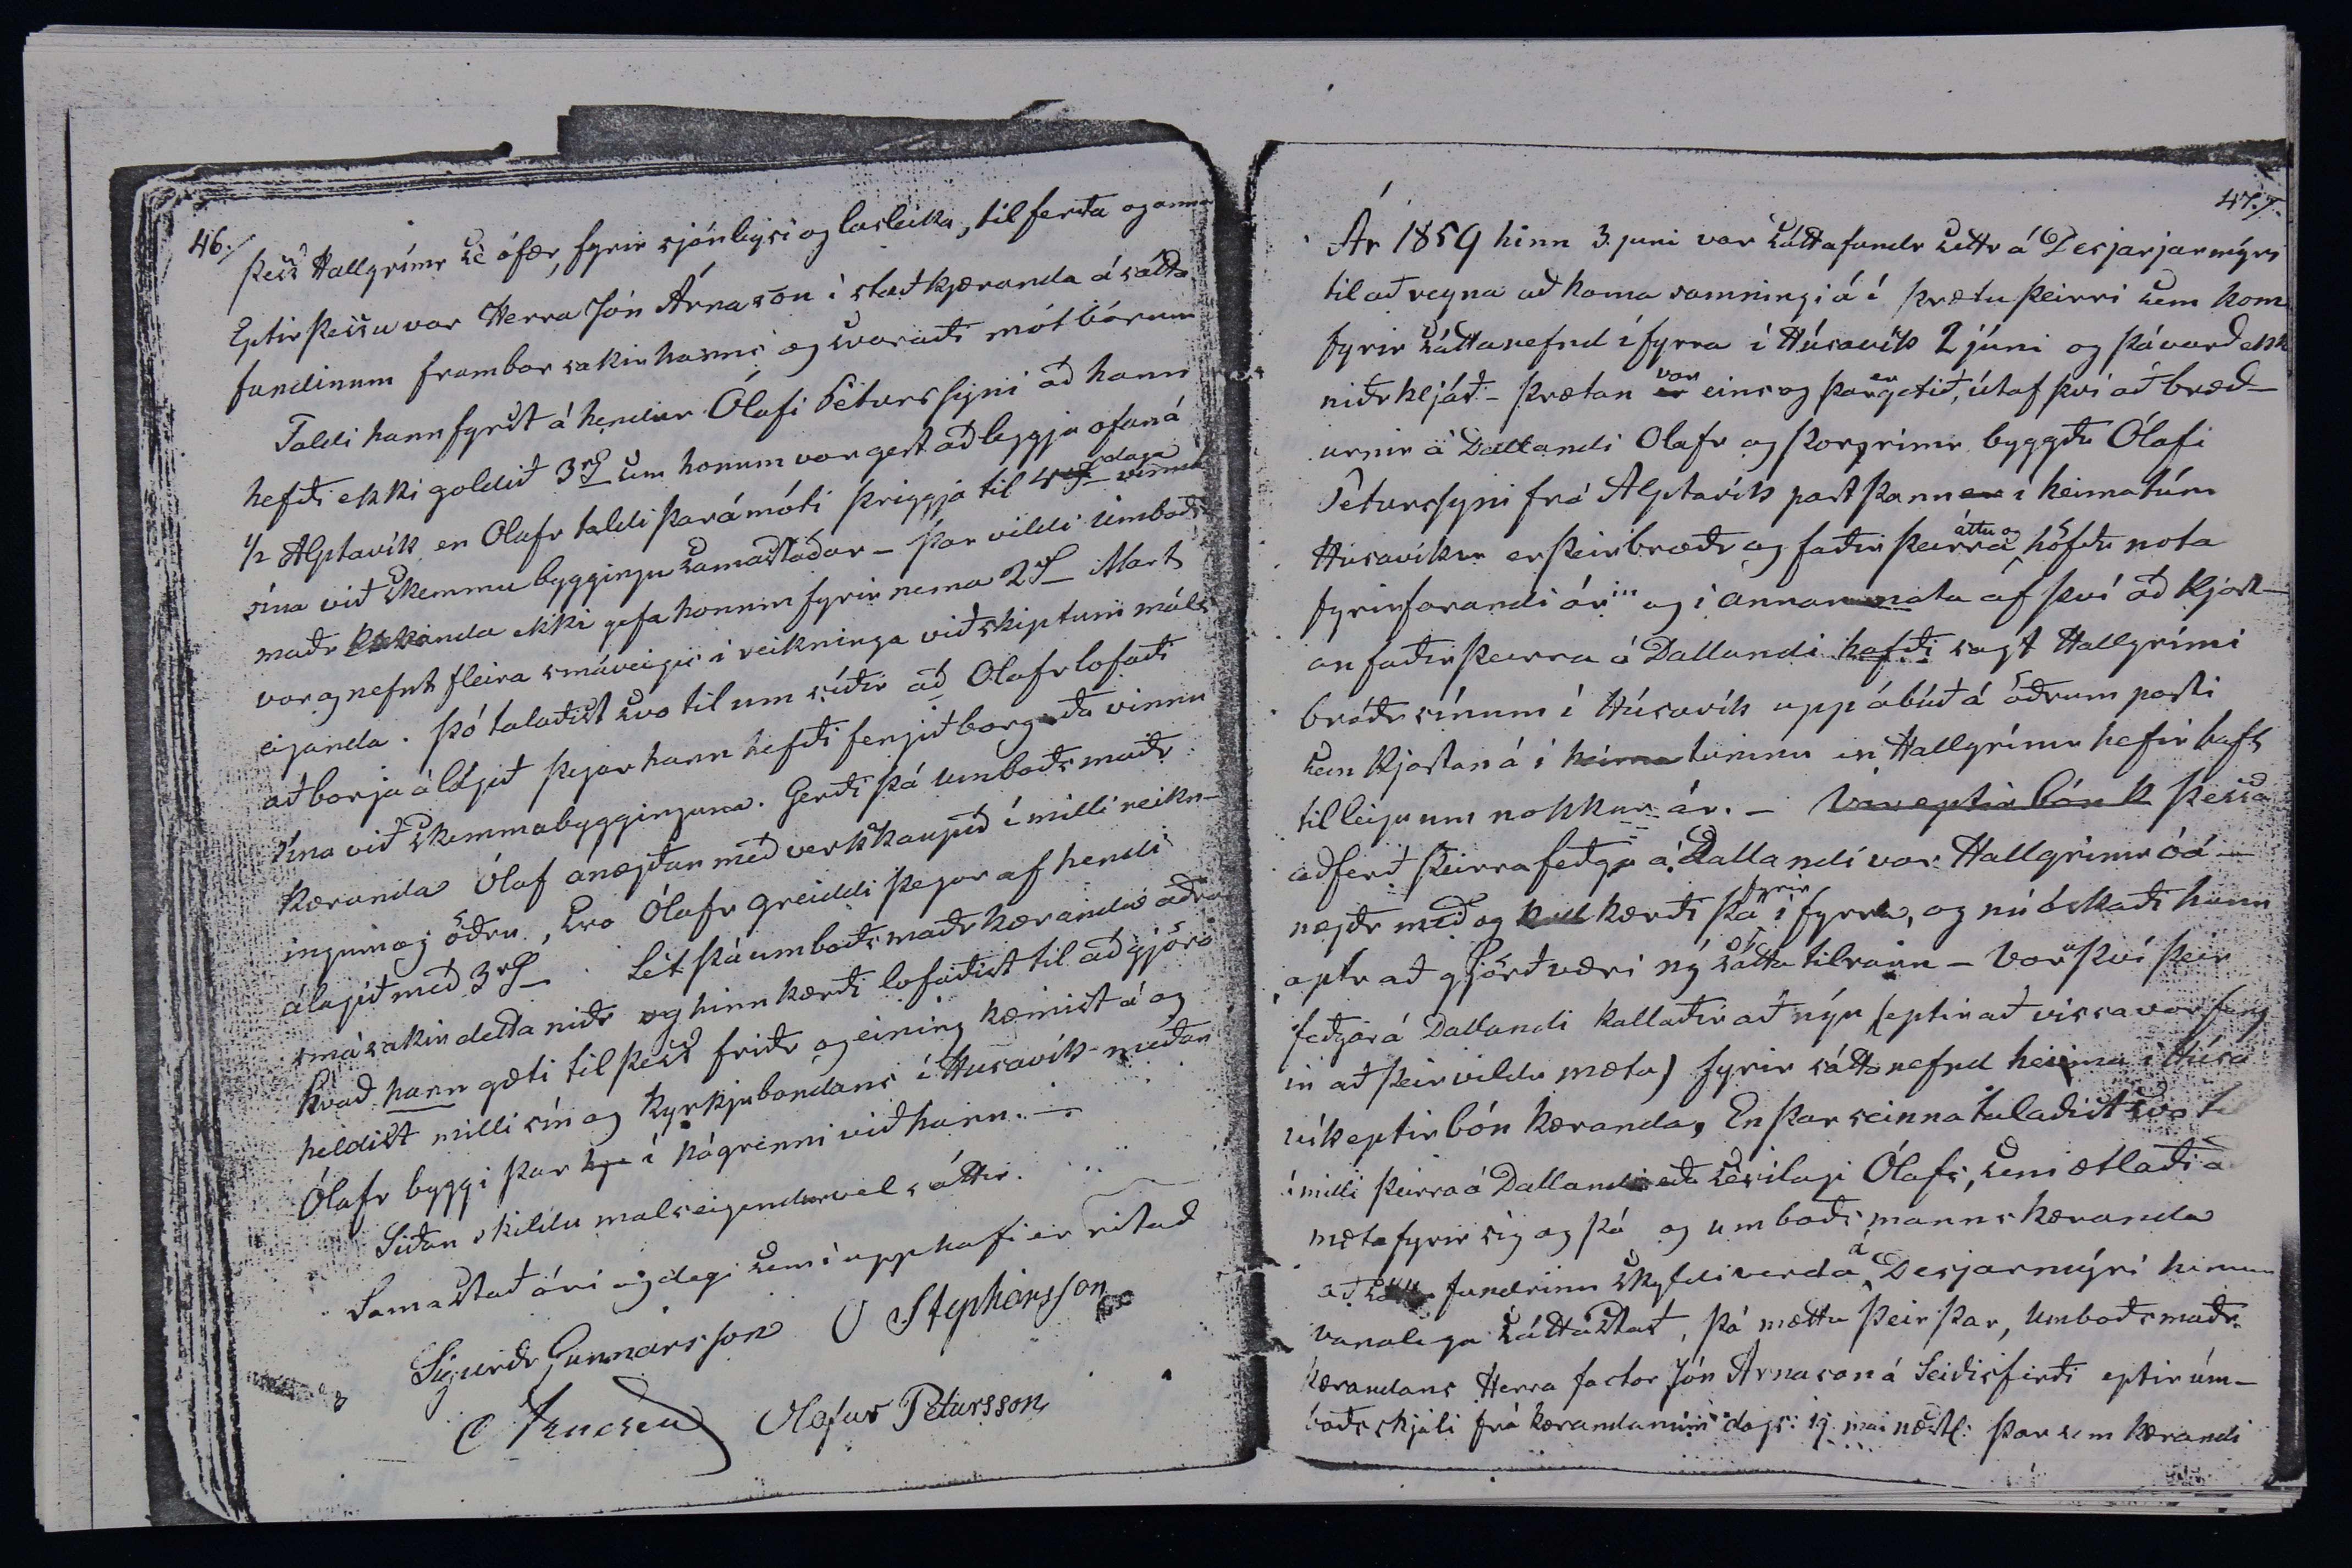 46./
þess Hallgrímr sè ófær, fyrir sjónleysi og lasleika, til ferða og anna
Eptir þessu var Herra Jón Árnason í stað kjæranda á sátta
fundinum frambar sakir hanns og svaraði mótbárum
Taldi hann fyrst á hendur Ólafi Péturssyni að hann
hefði ekki goldið 3 rd sem honum var gert að leggja ofaná
1/2 Alptavík en Olafr taldi þará móti þriggja til 4 daga vinnu
sína við skemmu byggingu samastaðar – þar vildi umboðs
maðr kæranda ekki gefa honum fyrir nema 2 rd Mart
var og nefnt fleira smáveigis í reikninga viðskiptum máls
eiganda. Þó talaðist svo til um síðir að Olafr lofaði
að borga álagið þegar hann hefði fengið borgaða vinnu
sína við skemmabygginguna. Gerði þá umboðsmaðr
kæranda Ólaf ánægðan með verkkaupið í milli reikn-
ingum og öðru, svo Ólafr greiddi þegar af hendi
álagið með 3 rd. Lèt þá umboðsmaðr kæranda aðra
smásakir detta niðr og hinn kærði lofaðist til að gjöra
hvað hann gæti til þess friðr og eining kæmist á og
heldist milli sín og Kyrkjubondans í Húsavík meðan
Ólafr byggi þar í nágrenni við hann. –
Siðan skildu malseigendur vel sáttir.
Samastað ári og degi sem í upphafi er ritað
Sigurðr Gunnarsson O Stephánsson
Olafur Petursson
47./.
Ár 1859 hinn 3. juni var sáttafundr settr á Desjarjarmýri
til að reyna að koma samningi á í þrætu þeirri sem kom
fyrir sáttanefnd í fyrra í Húsavík 2 júni og þá varð ekki
niðr kljáð. – Þrætan var eins og þar er getið, útaf því að bræð-
urnir á Dallandi Olafr og Þorgrímr byggðu Ólafi
Péturssyni frá Alptavík part þann er í heimatúm
Húsavíkur er þeir bræðr og faðir þeirra áttu og höfðu nota
fyrirfarandi ár og í annan máta af því að Kjart-
an faðir þeirra á Dallandi hafði sagt Hallgrími
bróðr sínum í Húsavík upp ábúð á öðrum parti
sem Kjartan á í heimatuninu en Hallgrímr hefir haft
til leigu um nokkur ár. – Var eptir bón k þessa
aðferð þeirra feðga á Dallandi var Hallgrímr óá-
nægðr með og kærði þá fyrir í fyrra, og nú óskaði hann
aptr að gjörð væri ný sátta tilraun – Vor því þeir
feðgar á Dallandi kallaðir að nýu (eptir að vissa var feng
in að þeir vildu mæta) fyrir sáttanefnd heima í Húsa
vík eptir bón kæranda, En þar seinna talaðist svo til
í milli þeirra á Dallandi eða sèrilagi Ólafs, sem ætlaði a
mæta fyrir sig og þá og umboðsmanns kæranda
að sátta fundrinn skyldi verða á Desjarmýri hinum
vanalega sáttastað, þá mættu þeir þar, Umboðsmaðr
kærandans Herra factor Jón Árnason á Seiðisfirði eptir um-
boðsskjali frá kærandanum dags: 19 mai næstl: þar sem kærandi